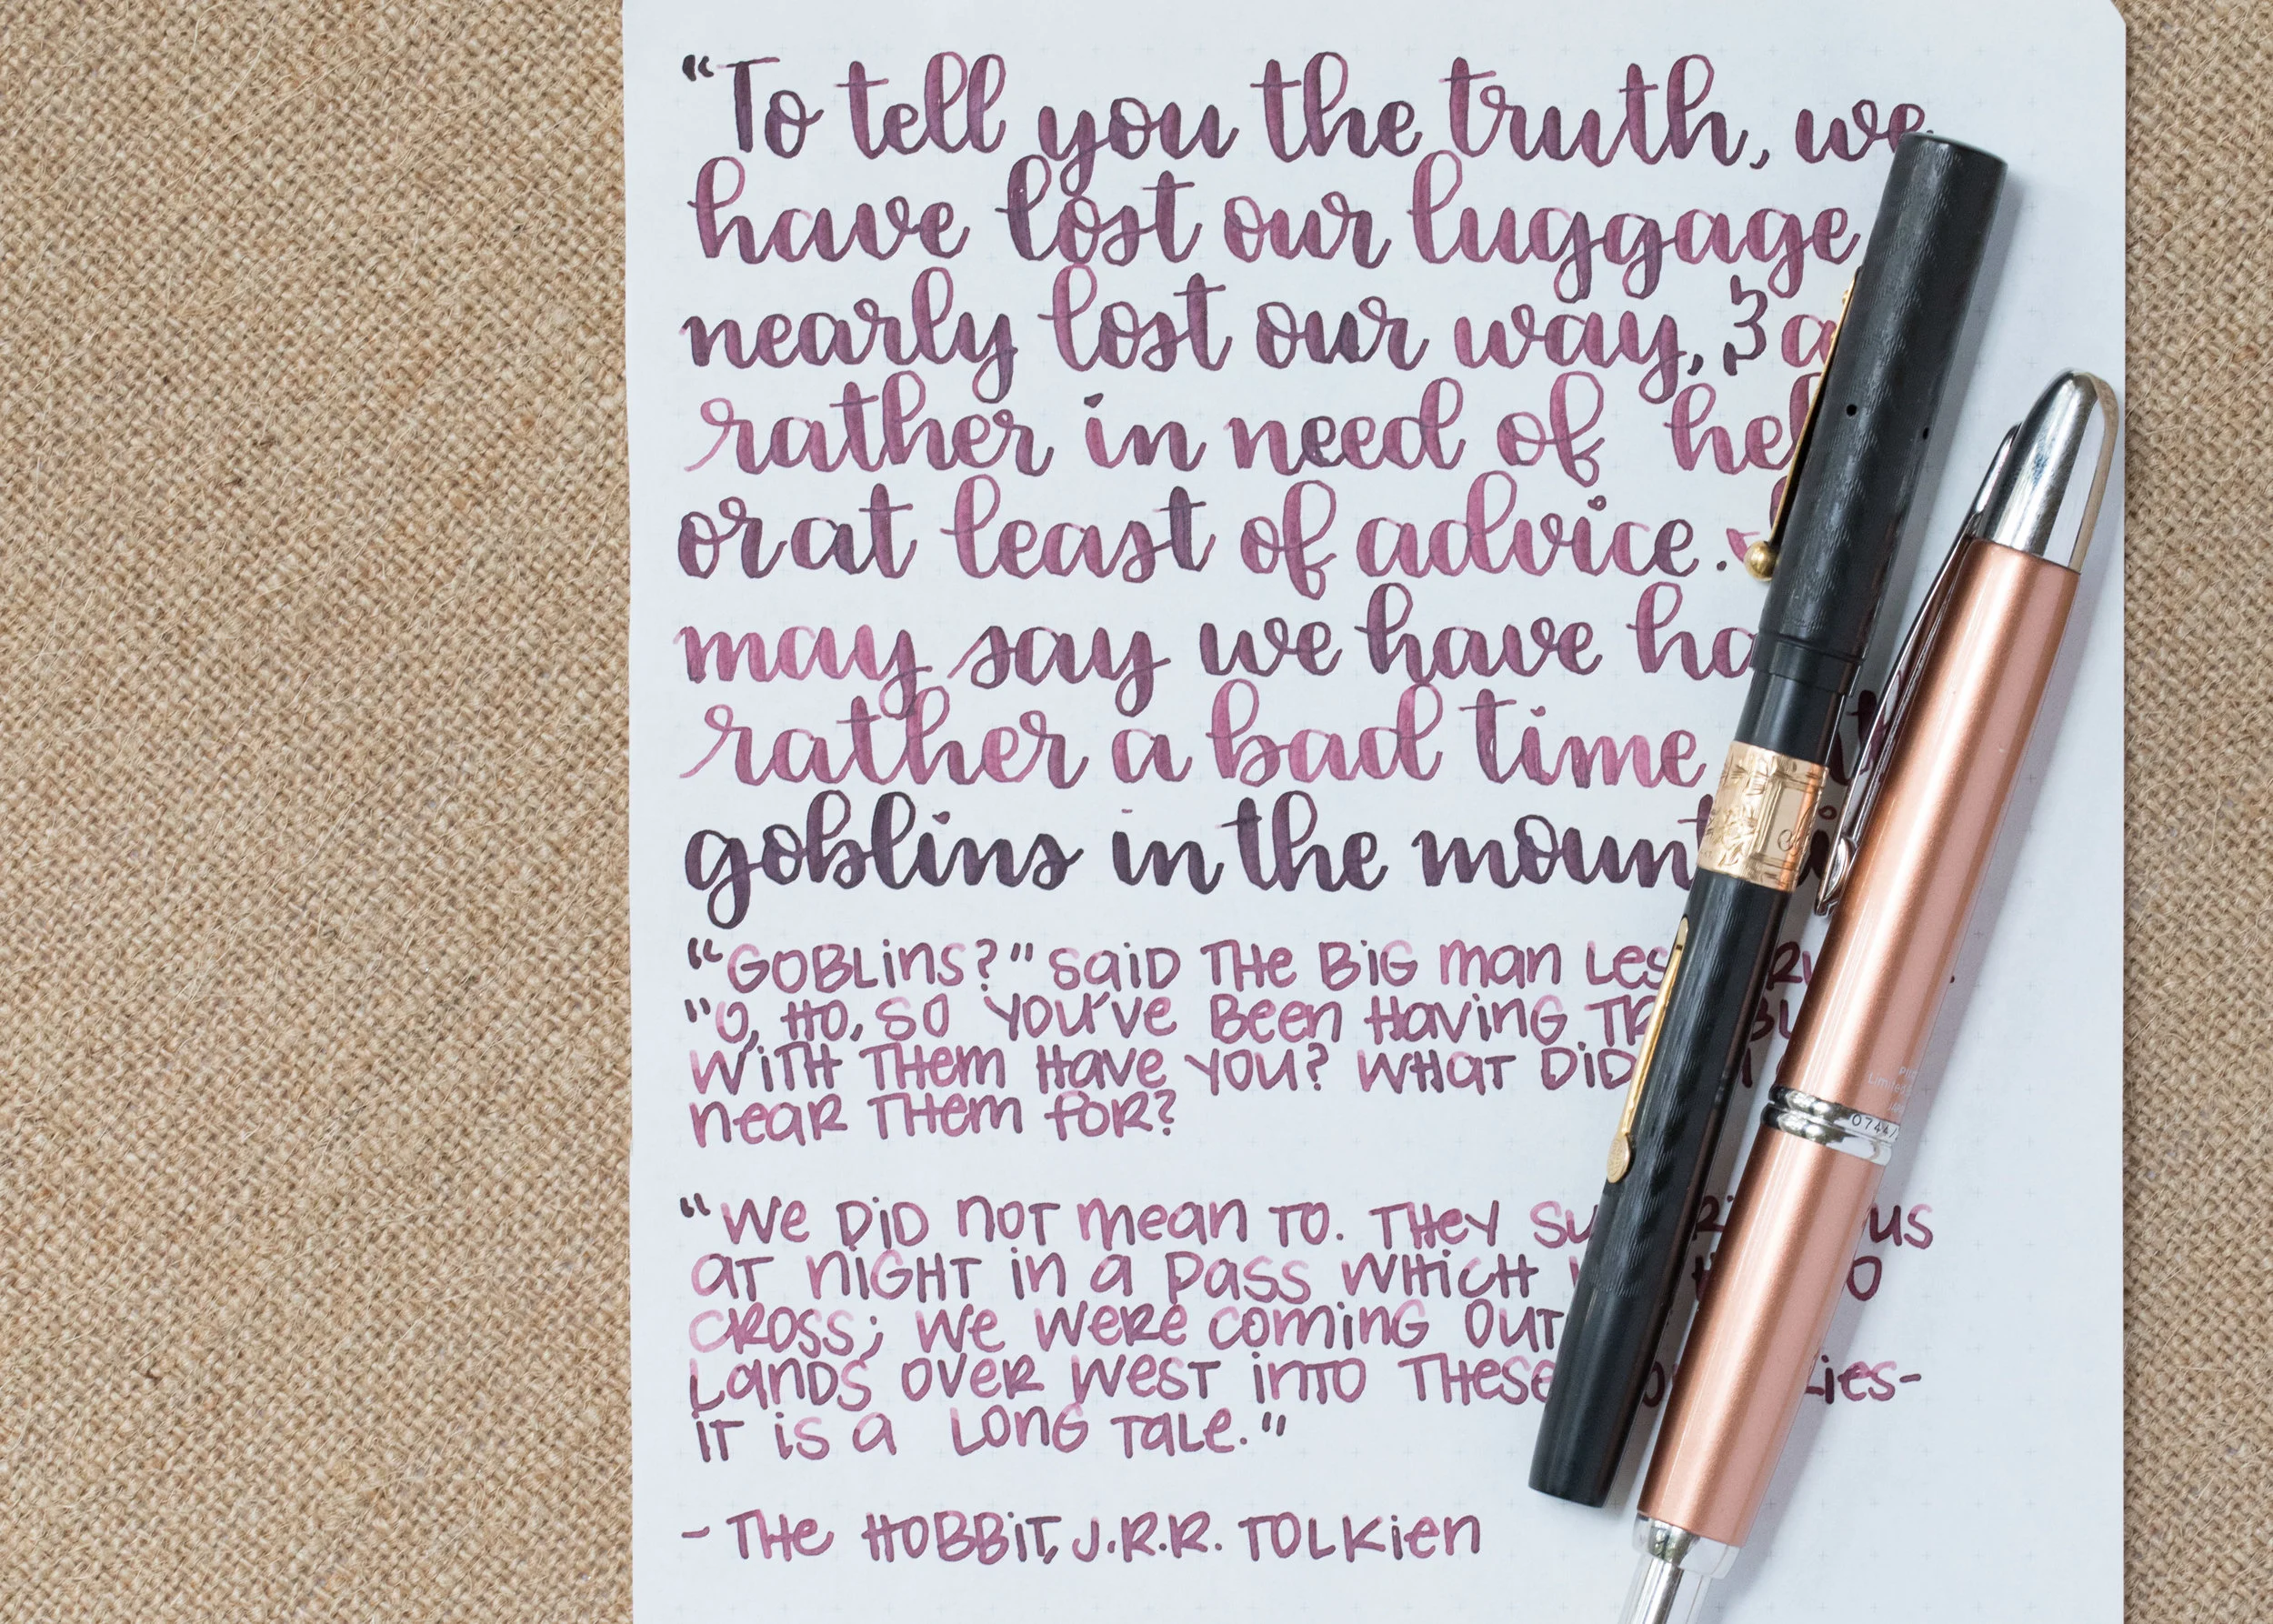 “To tell you the truth, we
have lost our luggage
nearly lost our way, &
rather in need of
or at least of advice.
may say we have
rather a bad time
goblins in the
“Goblins?” said the big man
“O, ho, so you've been having
with them have you? What did
near them for?
“We did not mean to. They us
at night in a pass which
cross; we were coming out
lands over west into these
it is a long tale.”
- The Hobbit, J.R.R. Tolkien
0744/